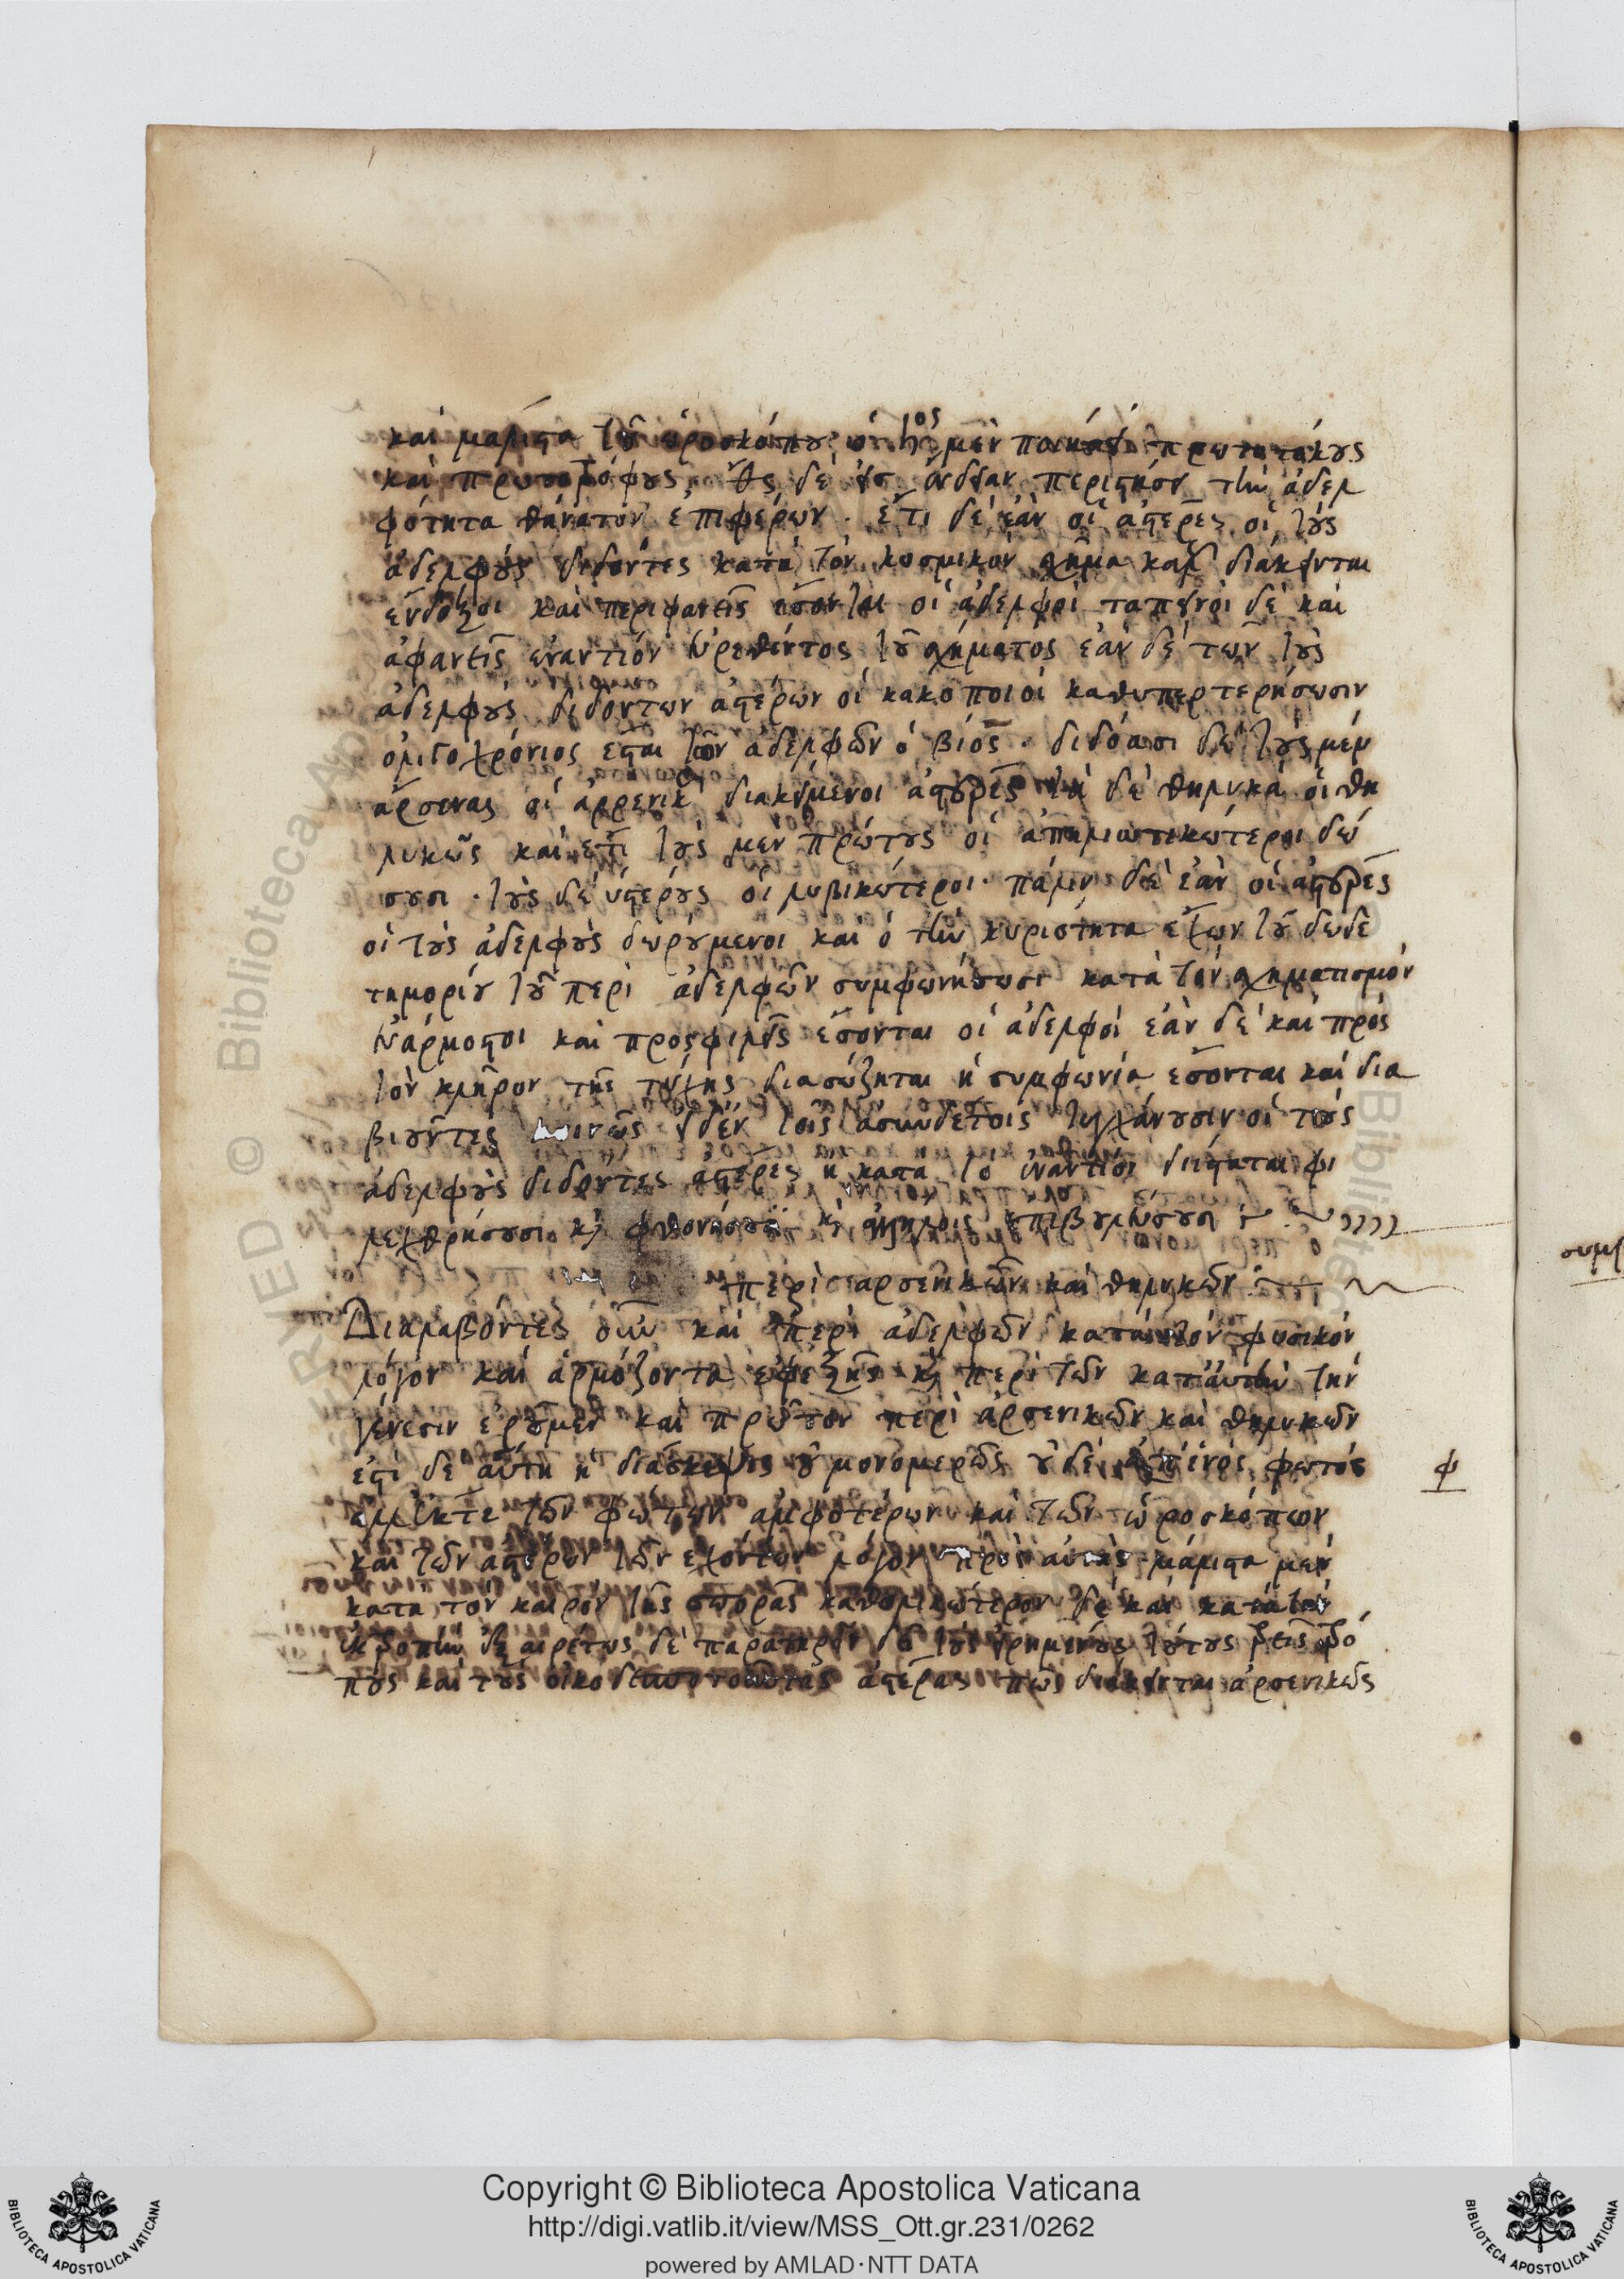 καὶ μάλιστα τοῦ ὡροσκόπου ὁ ♄ος μὲν ποιήσει πρωτοτόκους
καὶ πρωτοτρόφους, ♂ς δὲ
φότητα θάνατον ἐπιφέρων· ἔτι δὲ ἐὰν οἱ ἀστέρες οἱ τοὺς
ἀδελφοὺς διδόντες κατὰ τὸν κοσμικὸν σχῆμα καλ διάκεινται
ἔνδοξοι καὶ περιφανεῖς ἔσονται οἱ ἀδελφοὶ ταπεινοὶ δὲ καὶ
ἀφανεῖς ἐναντίον εὑρεθέντος τοῦ σχήματος ἐὰν δὲ τῶν τοὺς
ἀδελφοὺς διδόντων ἀστέρων οἱ κακοποιοὶ καθυπερτερήσωσιν
ὀλιγοχρόνιος ἔσται τῶν ἀδελφῶν ὁ βίος· διδόασι δὲ τοὺς μὲν
ἄρσενας οἱ ἀρρενικ διακείμενοι ἀστέρες τὰ δὲ θηλυκὰ οἱ θη
λυκῶς καὶ ἔτι τοὺς μὲν πρώτους οἱ ἀπηλιωτικώτεροι δώ
σουσι· τοὺς δὲ ὑστέρους οἱ λυβικώτεροι· πάλιν δὲ ἐὰν οἱ ἀστέρες
οἱ τοὺς ἀδελφοὺς δωρούμενοι καὶ ὁ τὴν κυριότητα ἔχων τοῦ δωδε
τημορίου τοῦ περὶ ἀδελφῶν συμφωνήσωσι κατὰ τὸν σχηματισμὸν
εὐάρμοστοι καὶ προσφιλεῖς ἔσονται οἱ ἀδελφοί ἐὰν δὲ καὶ πρὸς
τὸν κλῆρον τῆς τύχης διασώζηται ἡ συμφωνία ἔσονται καὶ δια
βιοῦντες κοινῶς εἰ δὲ ἐν τοῖς ἀσυνδέτοις τυγχάνουσιν οἱ τοὺς
ἀδελφοὺς διδόντες ἀστέρες ἢ κατὰ τὸ ἐναντίον διίσταται φι
λεχθρήσουσι κ φθονήσουσι κ ἀλλήλοις ἐπιβουλεύσουσι
περὶ ἀρσενικῶν καὶ θηλυκῶν
Διαλαβόντες οὖν καὶ περὶ ἀδελφῶν κατὰ τὸν φυσικὸν
λόγον καὶ ἁρμόζοντα ἐφεξῆς κ περὶ τῶν κατ' αὐτὴν τὴν
γένεσιν ἐροῦμεν καὶ πρῶτον περὶ ἀρσενικῶν καὶ θηλυκῶν
ἔστι δὲ αὕτη ἡ διάσκεψις οὐ μονομερῶς οὐδὲ ἀπὸ ἑνὸς φωτός
ἀλλ' ἔκτε τῶν φώτων ἀμφοτέρων καὶ τῶν ὡροσκόπων
καὶ τῶν ἀστέρων τῶν ἐχόντων λόγον πρὸς αὐτὰς μάλιστα μὲν
κατὰ τὸν καιρὸν τῆς σπορᾶς καθολικώτερον δὲ καὶ κατὰ τὴν
ἐκτροπὴν ἐξαιρέτως δὲ παρατηρεῖν δεῖ τοὺς εἰρημένους τούτους τρεῖς τρό
πους καὶ τοὺς οἰκοδεσποτοῦντας ἀστέρας πῶς διάκεινται ἀρσενικῶς
φ
συμ
Copyright © Biblioteca Apostolica Vaticana
http://digi.vatlib.it/view/MSS_Ott.gr.231/0262
powered by AMLAD·NTT DATA
BIBLIOTECA APOSTOLICA VATICANA
BIBLIOTECA APOSTOLICA VATICANA